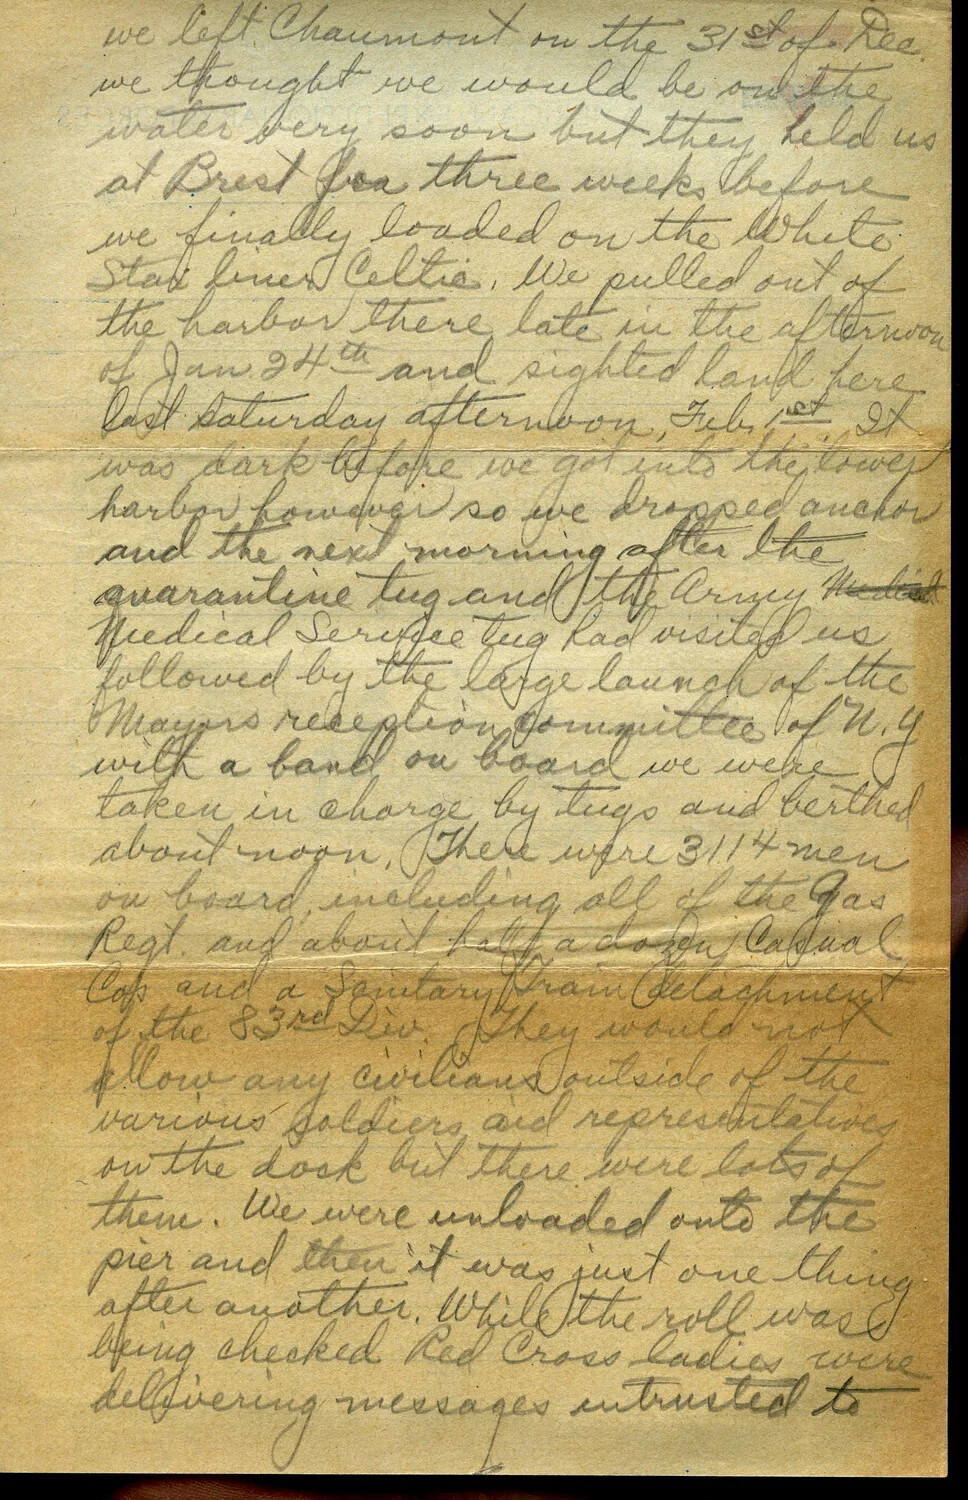 we left Chaumont on the 31st of Dec.
we thought we would be on the
water very soon but they held us
at Brest for three weeks before
we finally loaded on the White
Star liner Celtic. We pulled out of
the harbor there late in the afternoon
of Jan 24th and sighted land here
last Saturday afternoon, Feb. 1st. It
was dark before we got into the lower
harbor however so we dropped anchor
and the next morning after the
quarantine tug and the Army
Medical Service tug had visited us
followed by the large launch of the
Mayors reception committee of N.Y
with a band on board we were
taken in charge by tugs and berthed
about noon. There were 3114 men
on board, including all of the Gas
Regt. and about half a dozen Casual
Cos and a Sanitary Train detachment
of the 83rd Div. They would not
allow any civilians outside of the
various soldiers aid representatives
on the dock but there were lots of
them. We were unloaded onto the
pier and then it was just one thing
after another. While the roll was
being checked Red Cross ladies were
delivering messages intrusted to